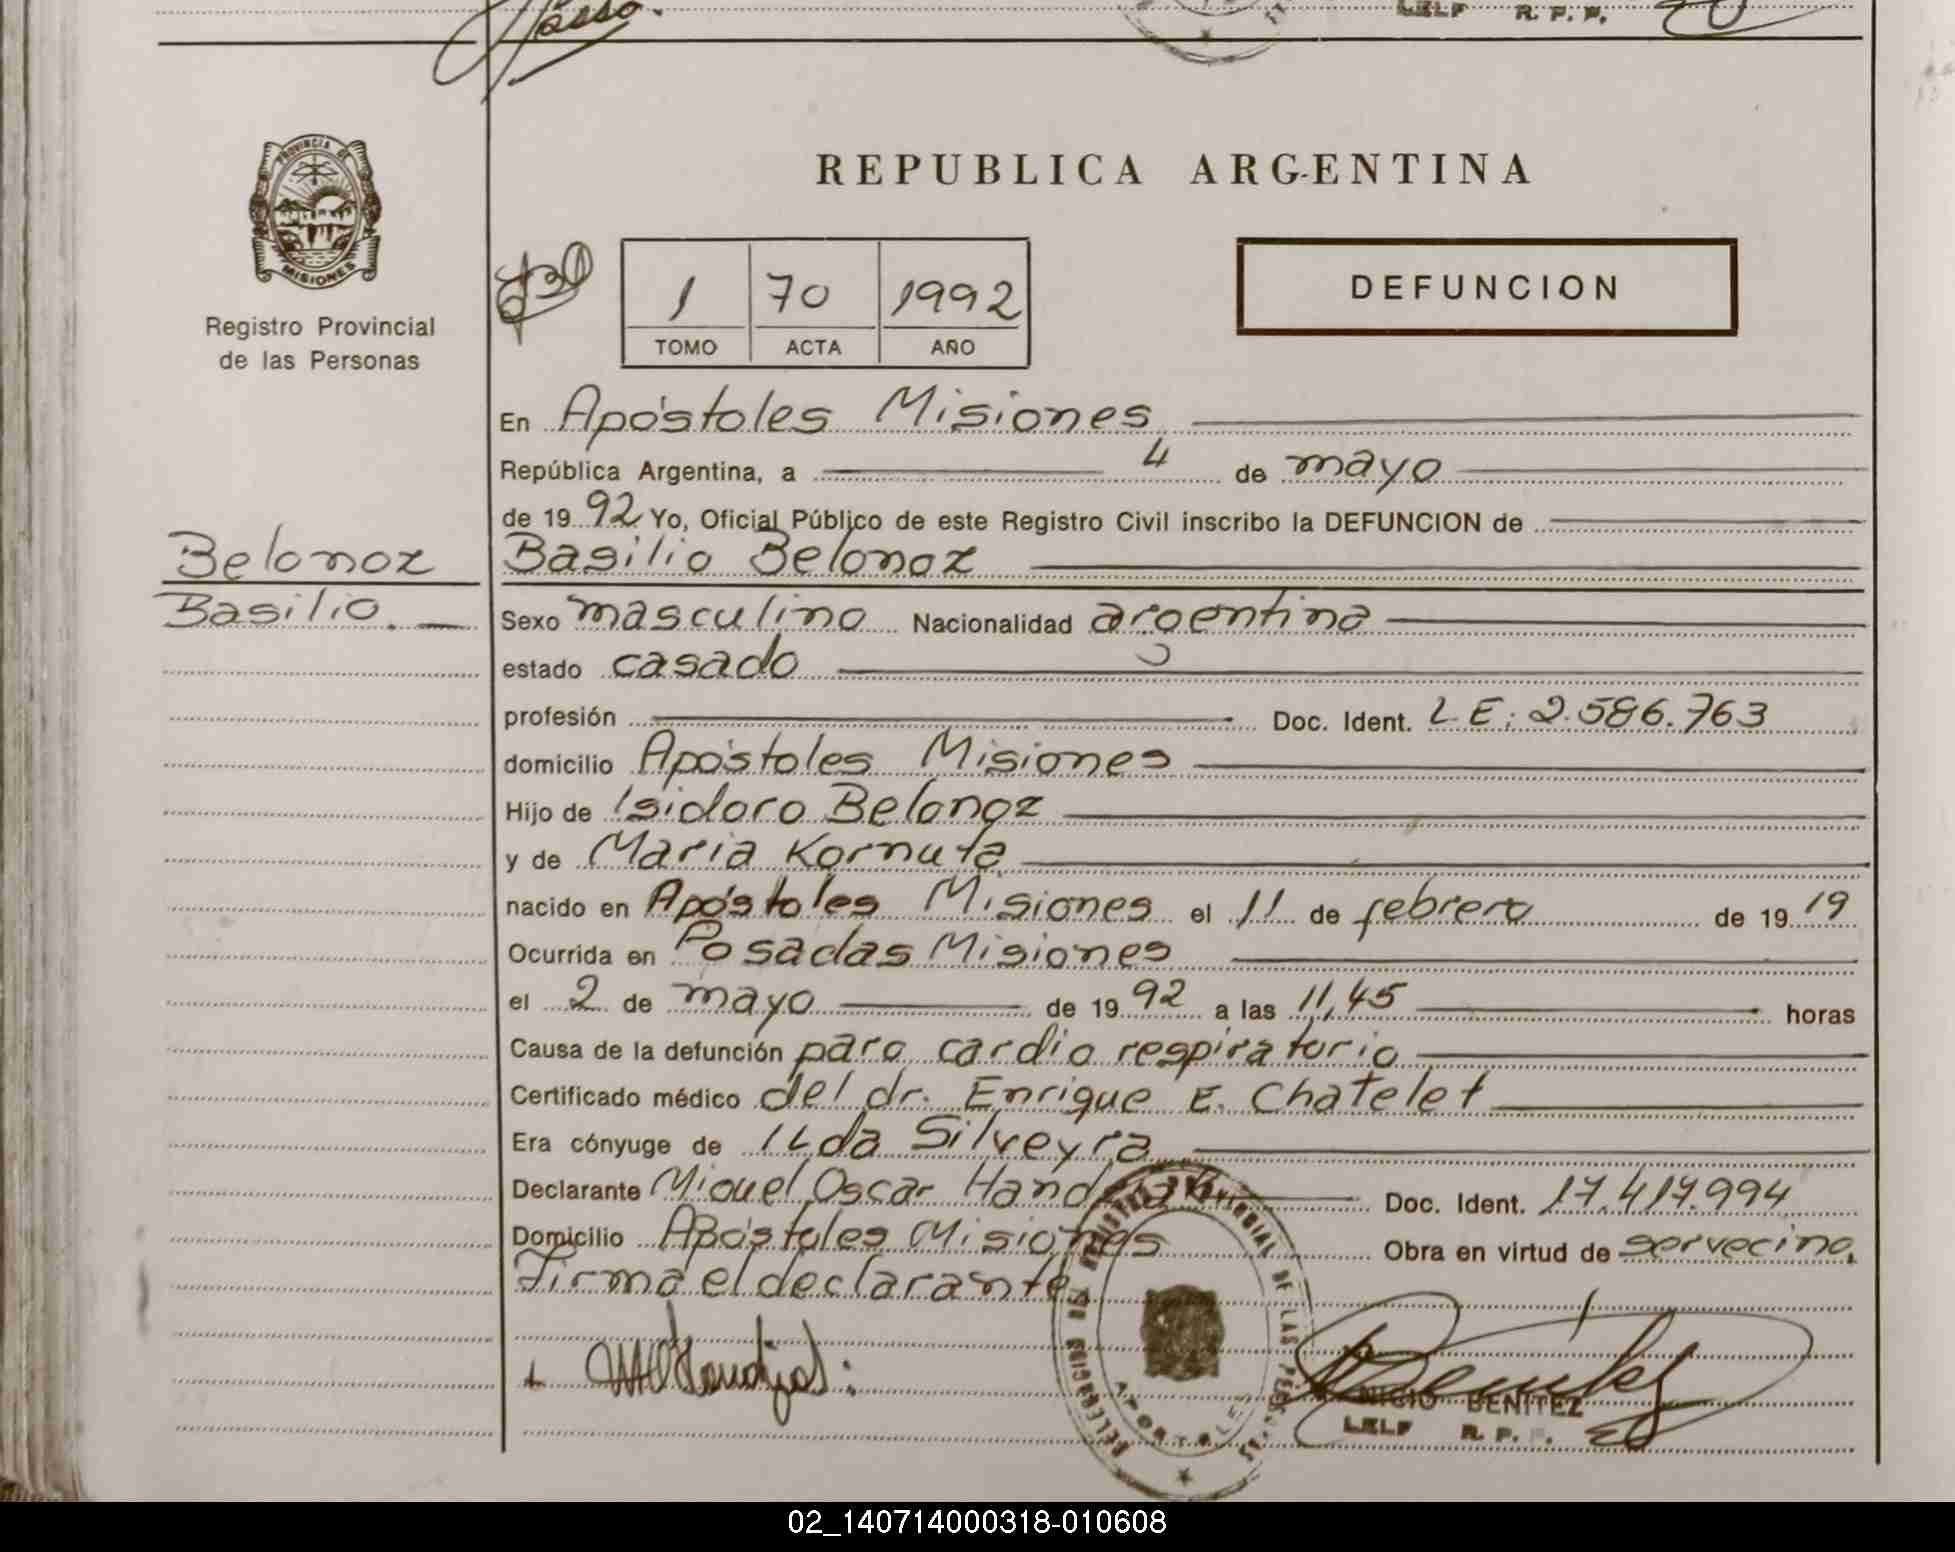 LELF R. P. P.
PROVINCIA DE
MISIONES
Registro Provincial
de las Personas
REPUBLICA ARGENTINA
1 70 1992
TOMO ACTA AÑO
DEFUNCION
En Apóstoles Misiones
República Argentina, a 4 de mayo
de 1992 Yo, Oficial Público de este Registro Civil inscribo la DEFUNCION de
Belonoz
Basilio Belonoz
Basilio.
Sexo masculino Nacionalidad argentina
estado casado
profesión Doc. Ident. L.E: 2.586.763
domicilio Apóstoles Misiones
Hijo de Isidoro Belonoz
y de Maria Kornuta
nacido en Apóstoles Misiones el 11 de febrero de 1919
Ocurrida en Posadas Misiones
el 2 de mayo de 1992 a las 11,45 horas
Causa de la defunción paro cardio respiratorio
Certificado médico del dr. Enrique E. Chatelet
Era cónyuge de Ilda Silveyra
Declarante Miguel Oscar Doc. Ident. 17.417.994
Domicilio Apóstoles Misiones Obra en virtud de ser vecino.
Firma el declarante
BENITEZ
LELF R. P. P.
02_140714000318-010608